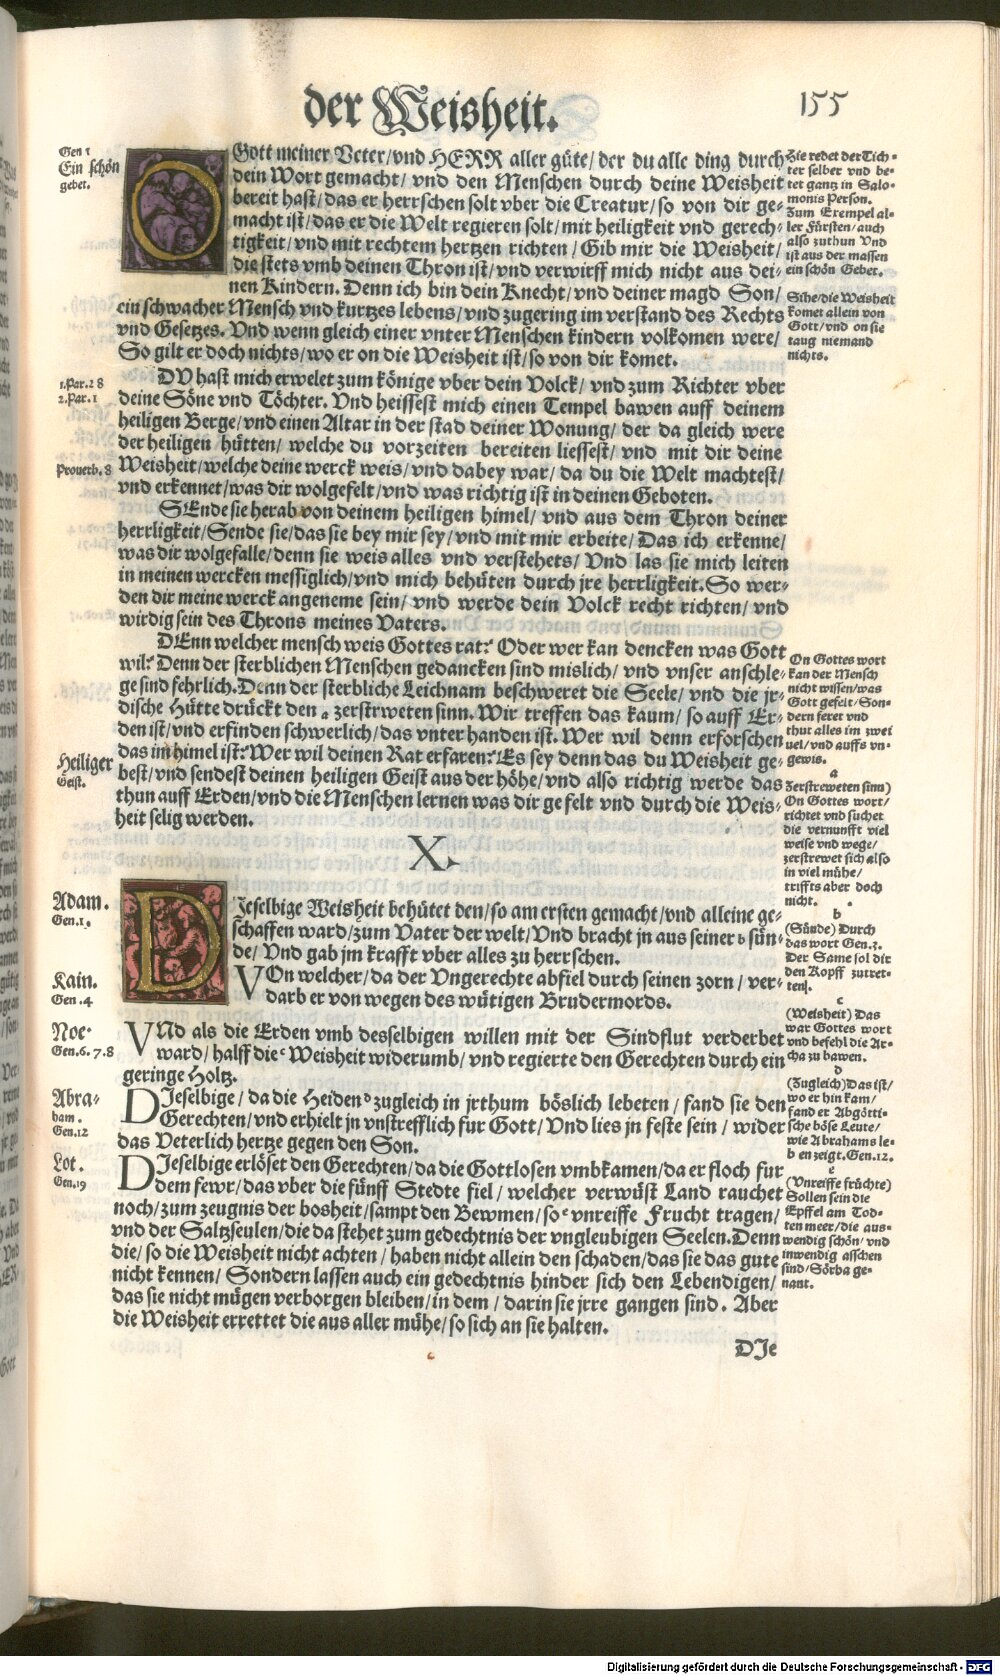 der Weisheit.
155
Gen 1
Ein schön
gebet.
O Gott meiner Veter/vnd HERR aller güte/der du alle ding durch
dein Wort gemacht/ vnd den Menschen durch deine Weisheit
bereit hast/das er herrschen solt vber die Creatur/so von dir ge-
macht ist/das er die Welt regieren solt/mit heiligkeit vnd gerech-
tigkeit/vnd mit rechtem hertzen richten/Gib mir die Weisheit/
die stets vmb deinen Thron ist/vnd verwirff mich nicht aus dei-
nen Kindern. Denn ich bin dein Knecht/vnd deiner magd Son/
ein schwacher Mensch vnd kurtzes lebens/vnd zugering im verstand des Rechts
vnd Gesetzes. Vnd wenn gleich einer vnter Menschen kindern volkomen were/
So gilt er doch nichts/wo er on die Weisheit ist/so von dir komet.
Hie redet der Tich-
ter selber vnd be-
tet gantz in Salo-
monis Person.
Zum Exempel al-
ler Fürsten/auch
also zuthun Vnd
ist aus der massen
ein schön Gebet.
Sihe/die Weisheit
komet allein von
Gott/vnd on sie
taug niemand
nichts.
1.Par.28
2.Par.1
DV hast mich erwelet zum könige vber dein Volck/ vnd zum Richter vber
deine Söne vnd Töchter. Vnd heissest mich einen Tempel bawen auff deinem
heiligen Berge/vnd einen Altar in der stad deiner Wonung/der da gleich were
der heiligen hütten/ welche du vorzeiten bereiten liessest/ vnd mit dir deine
Prouerb.8
Weisheit/welche deine werck weis/vnd dabey war/da du die Welt machtest/
vnd erkennet/was dir wolgefelt/vnd was richtig ist in deinen Geboten.
SEnde sie herab von deinem heiligen himel/ vnd aus dem Thron deiner
herrligkeit/Sende sie/das sie bey mir sey/vnd mit mir erbeite/Das ich erkenne/
was dir wolgefalle/denn sie weis alles vnd verstehets/Vnd las sie mich leiten
in meinen wercken messiglich/vnd mich behüten durch jre herrligkeit. So wer-
den dir meine werck angeneme sein/ vnd werde dein Volck recht richten/ vnd
wirdig sein des Throns meines Vaters.
DEnn welcher mensch weis Gottes rat? Oder wer kan dencken was Gott
wil? Denn der sterblichen Menschen gedancken sind mislich/ vnd vnser anschle-
ge sind fehrlich. Denn der sterbliche Leichnam beschweret die Seele/ vnd die jr-
dische Hütte drückt den a zerstrweten sinn. Wir treffen das kaum/so auff Er-
den ist/vnd erfinden schwerlich/das vnter handen ist. Wer wil denn erforschen
das im himel ist? Wer wil deinen Rat erfaren? Es sey denn das du Weisheit ge-
best/vnd sendest deinen heiligen Geist aus der höhe/vnd also richtig werde das
thun auff Erden/vnd die Menschen lernen was dir gefelt vnd durch die Weis-
heit selig werden.
Heiliger
Geist.
On Gottes wort
kan der Mensch
nicht wissen/was
Gott gefelt/Son-
dern feret vnd
thut alles im zwei
uel/vnd auffs vn-
gewis.
a
Zerstreweten sinn)
On Gottes wort/
richtet vnd suchet
die vernunfft viel
weise vnd wege/
zerstrewet sich also
in viel mühe/
triffts aber doch
nicht.
X.
Adam.
Gen.1.
DIeselbige Weisheit behütet den/so am ersten gemacht/vnd alleine ge-
schaffen ward/zum Vater der welt/Vnd bracht jn aus seiner b sün-
de/Vnd gab jm krafft vber alles zu herrschen.
Kain.
Gen.4
VOn welcher/da der Vngerechte abfiel durch seinen zorn/ ver-
darb er von wegen des wütigen Brudermords.
Noe.
Gen.6.7.8
VNd als die Erden vmb desselbigen willen mit der Sindflut verderbet
ward/halff die c Weisheit widerumb/vnd regierte den Gerechten durch ein
geringe Holtz.
Abra-
ham.
Gen.12
DIeselbige/da die Heiden d zugleich in jrthum böslich lebeten/fand sie den
Gerechten/vnd erhielt jn vnstrefflich fur Gott/Vnd lies jn feste sein/wider
das Veterlich hertze gegen den Son.
Lot.
Gen.19
DIeselbige erlöset den Gerechten/da die Gottlosen vmbkamen/da er floch fur
dem fewr/das vber die fünff Stedte fiel/ welcher verwüst Land rauchet
noch/zum zeugnis der bosheit/sampt den Bewmen/so e vnreiffe Frucht tragen/
vnd der Saltzseulen/die da stehet zum gedechtnis der vngleubigen Seelen. Denn
die/so die Weisheit nicht achten/haben nicht allein den schaden/das sie das gute
nicht kennen/ Sondern lassen auch ein gedechtnis hinder sich den Lebendigen/
das sie nicht mügen verborgen bleiben/in dem/ darin sie jrre gangen sind. Aber
die Weisheit errettet die aus aller mühe/so sich an sie halten.
b
(Sünde) Durch
das wort Gen.3.
Der Same sol dir
den Kopff zutret-
ten.
c
(Weisheit) Das
war Gottes wort
vnd befehl die Ar-
cha zu bawen.
d
(Zugleich)Das ist/
wo er hin kam/
fand er Abgötti-
sche böse Leute/
wie Abrahams le-
ben zeigt.Gen.12.
e
(Vnreiffe früchte)
Sollen sein die
Epffel am Tod-
ten meer/die aus-
wendig schön/vnd
inwendig asschen
sind/Sorba ge-
nant.
DIe
Digitalisierung gefördert durch die Deutsche Forschungsgemeinschaft - DFG